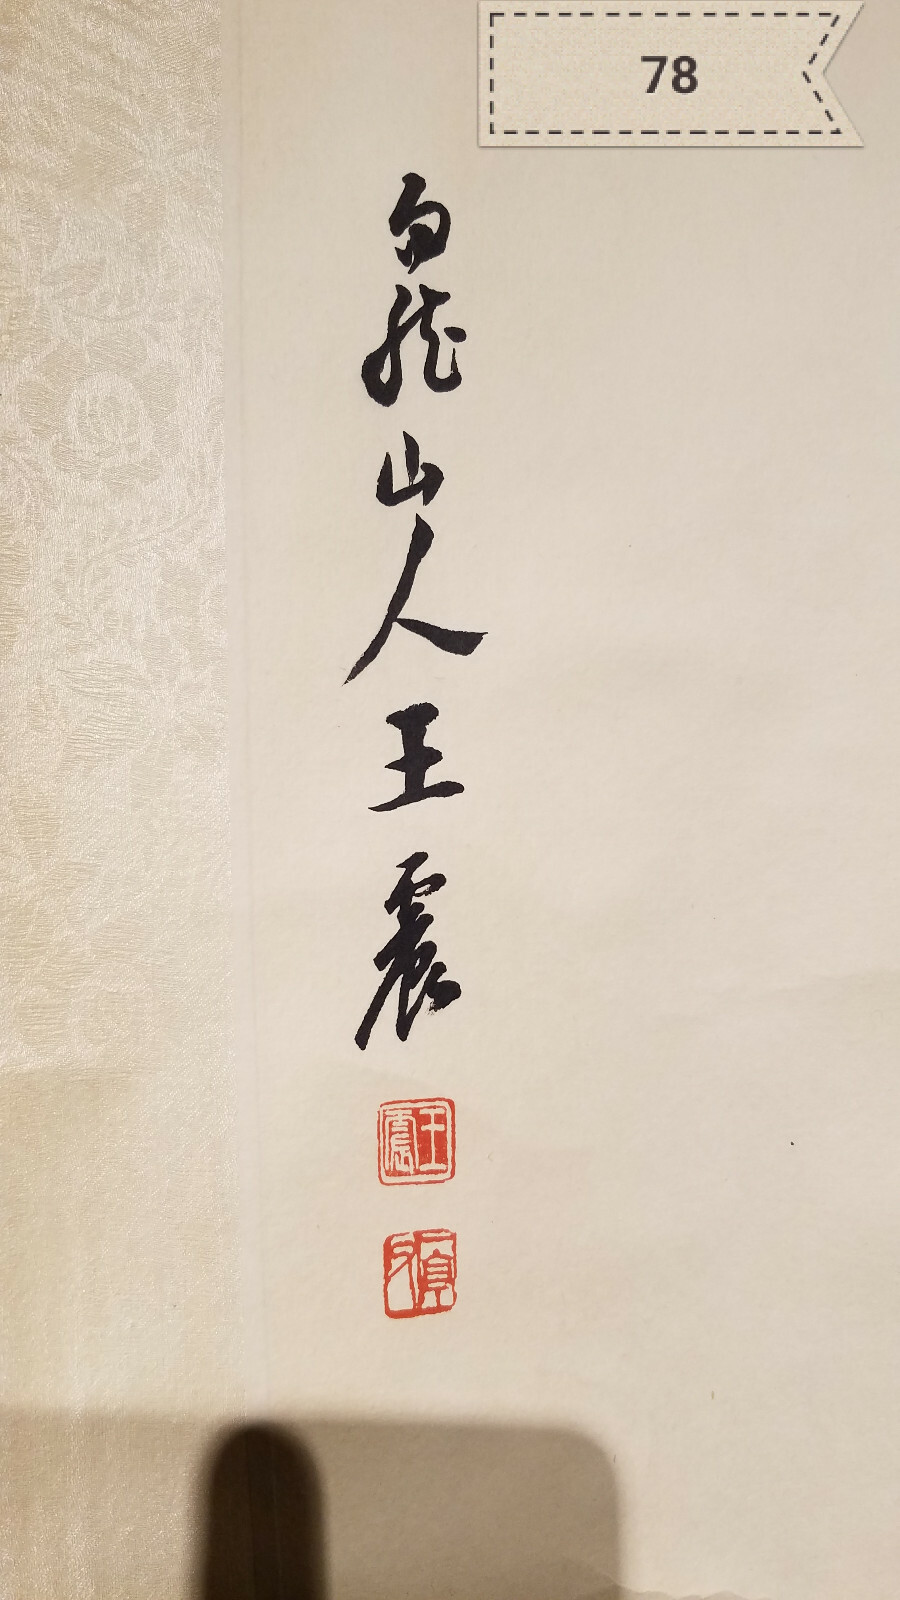 78
白龍山人王震
王震